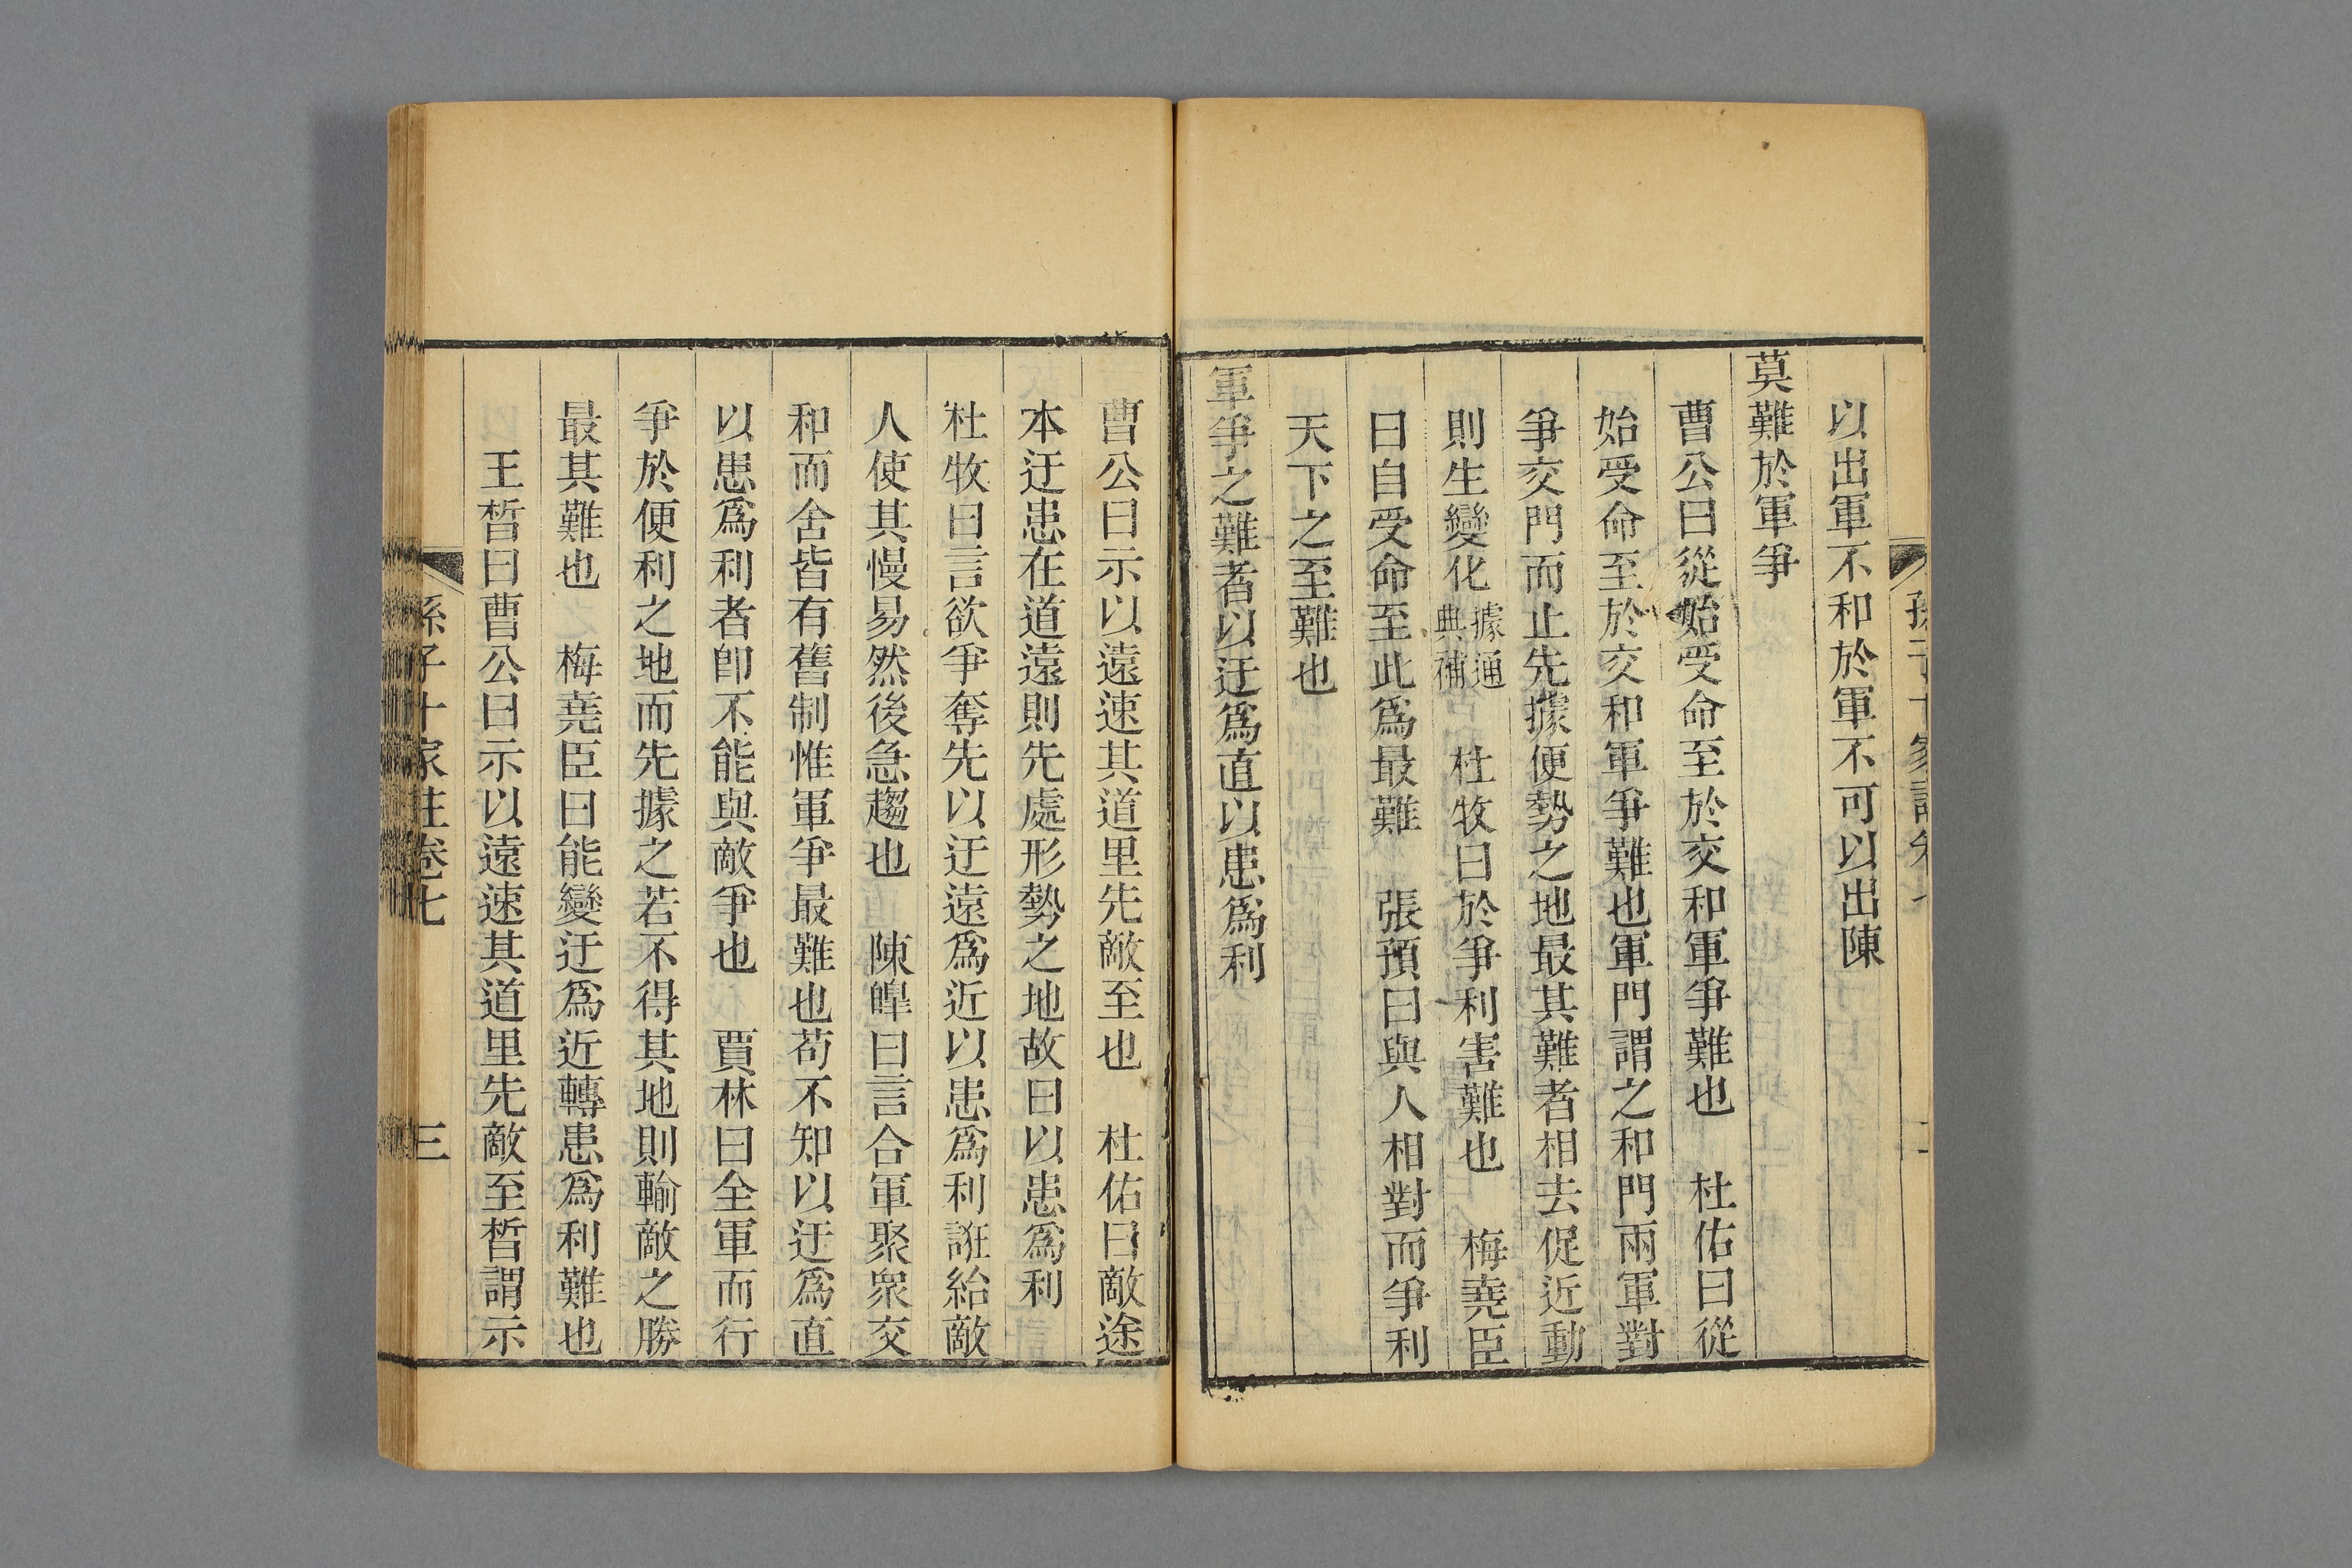 以出軍不和於軍不可以出陳
莫難於軍爭
曹公曰從始受命至於交和軍爭難也　杜佑曰從
始受命至於交和軍爭難也軍門謂之和門兩軍對
爭交門而止先據便勢之地最其難者相去促近動
則生變化據通典補　杜牧曰於爭利害難也　梅堯臣
曰自受命至此爲最難　張預曰與人相對而爭利
天下之至難也
軍爭之難者以迂爲直以患爲利
曹公曰示以遠速其道里先敵至也　杜佑曰敵途
本迂患在道遠則先處形勢之地故曰以患爲利
杜牧曰言欲爭奪先以迂遠爲近以患爲利誑紿敵
人使其慢易然後急趨也　陳皥曰言合軍聚衆交
和而舍皆有舊制惟軍爭最難也苟不知以迂爲直
以患爲利者卽不能與敵爭也　賈林曰全軍而行
爭於便利之地而先據之若不得其地則輸敵之勝
最其難也　梅堯臣曰能變迂爲近轉患爲利難也
王晳曰曹公曰示以遠速其道里先敵至晳謂示
孫子十家註卷七　三